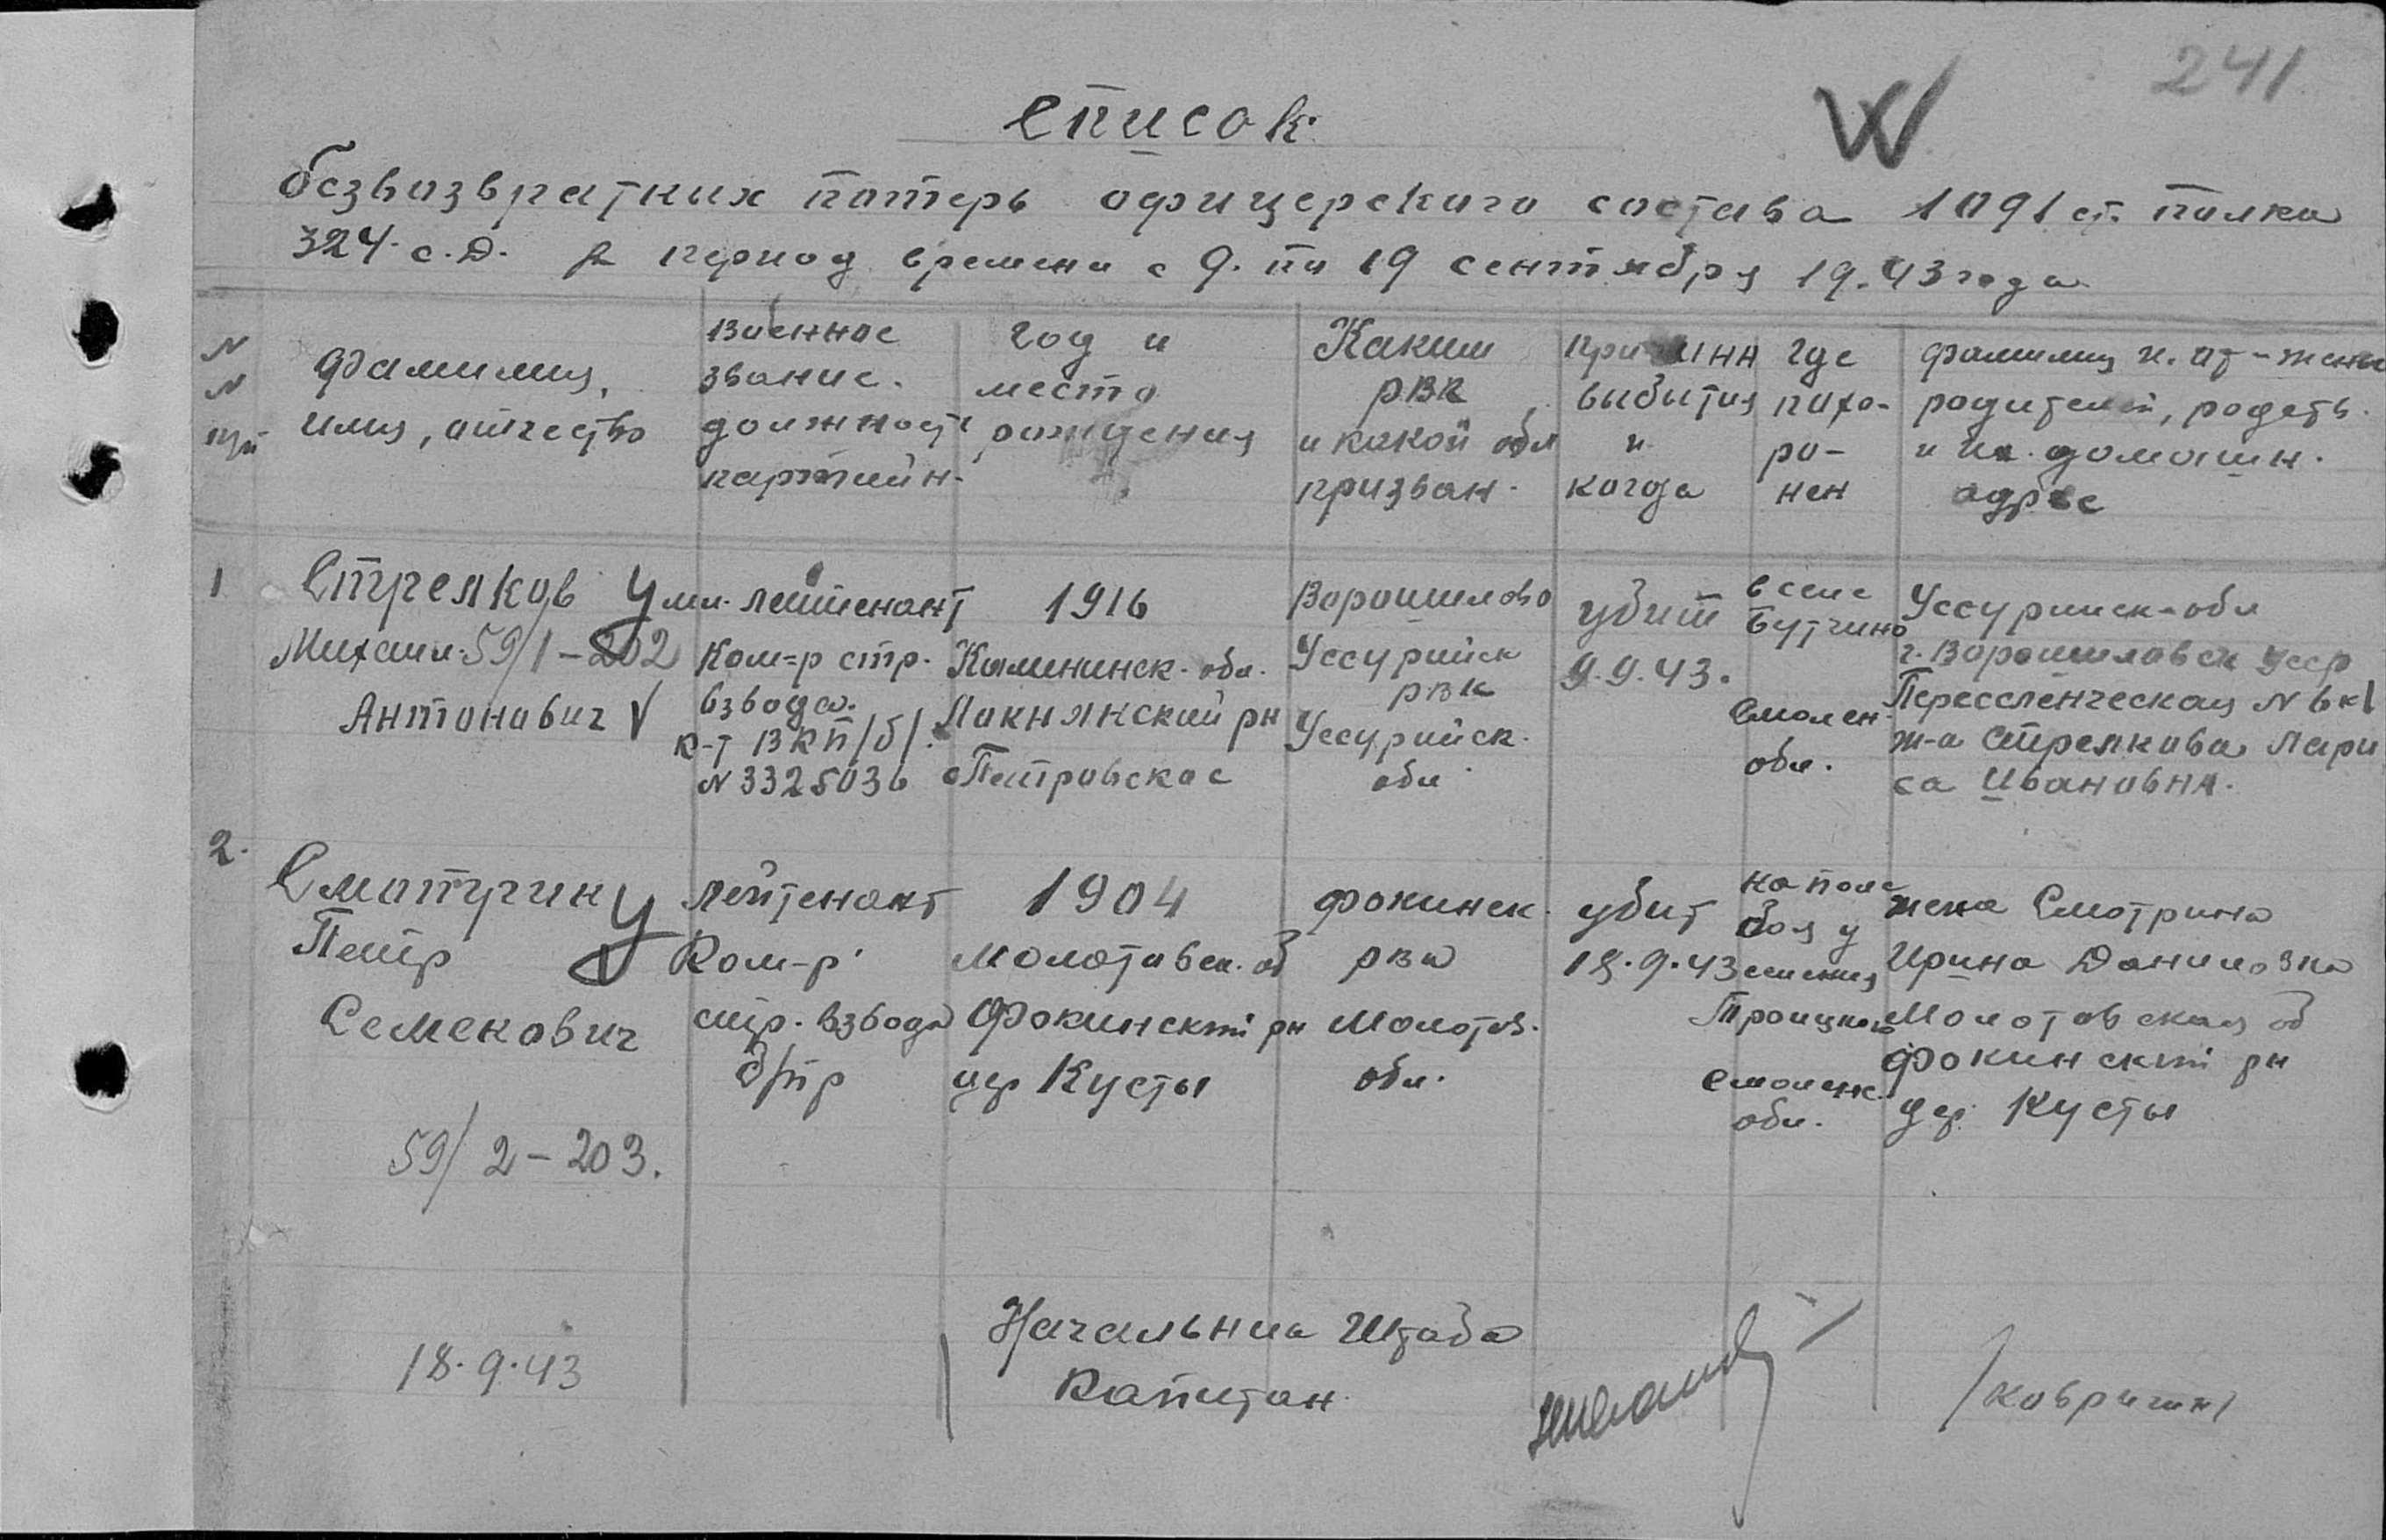 241
Список
безвозвратных потерь офицерского состава 1091 ст. полка
324 с.д. в период времени с 9. по 19 сентября 19.43 года
N N п/п
Фамилия, имя, отчество
Военное звание. должность партийн.
год и место рождения
Каким РВК и какой обл призван.
причина выбытия и когда
где похо- ро- нен
фамилия и. от - жены родителей, родств. и их. домашн. адрес
1
Стрелков
Михаил 59/1-202
Антонович V
мл. лейтенант
Ком-р стр.
взвода.
к-т ВКП/б/.
N 3325036
1916
Калининск. обл.
Локнянский рн
Петровское
Ворошилово
Уссурийск
рвк
Уссурийск.
обл
убит
9.9.43.
в селе
Бутчино
Смолен.
обл.
Уссурийск-обл
г. Ворошиловск Усср
Переселенческая N 6 к1
ж-а Стрелкова Лари
са Ивановна.
2.
Смотрин
Петр
Семенович
59/2-203.
лейтенант
Ком-р
стр. взвода
б/пр
1904
Молотовск. об
Фокинский рн
дер Кусты
Фокинск.
рвк
Молотов.
обл.
убит
18.9.43
на поле
боя у
селения
Троицкого
Смоленс.
обл.
жена Смотрина
Ирина Даниловна
Молотовская об
Фокинский рн
дер. Кусты
18.9.43
Начальник Штаба
Капитан
/Ковригин/